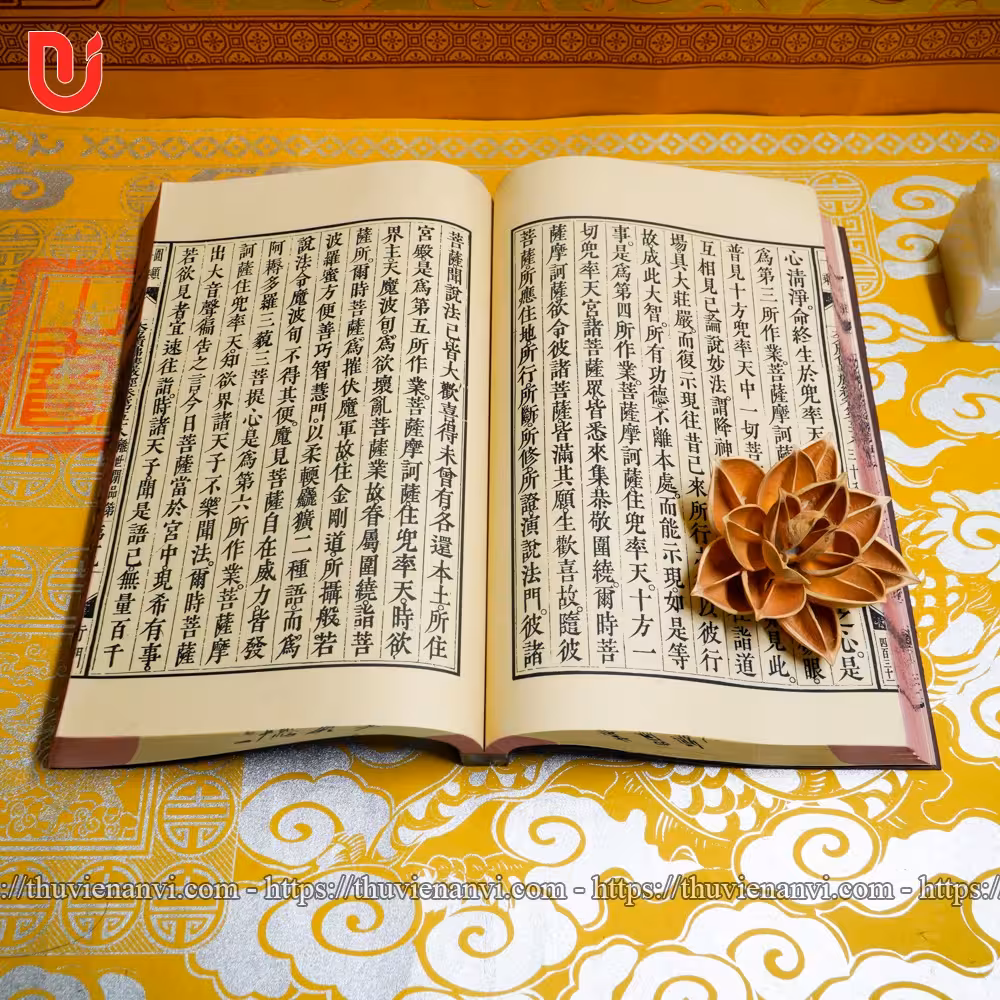 心清淨。命終生於兜率天
之心是
為第三所作業。菩薩摩訶薩
眼。
普見十方兜率天中一切菩
見此。
互相見已。論說妙法。謂降神
住詣道
場。具大莊嚴。而復示現往昔已來所行
以彼行
故成此大智。所有功德。不離本處。而能示現如是等
事。是為第四所作業。菩薩摩訶薩住兜率天。十方一
切兜率天宮諸菩薩眾。皆悉來集。恭敬圍繞。爾時菩
薩摩訶薩欲令彼諸菩薩皆滿其願。生歡喜故。隨彼
菩薩所應住地。所行所斷。所修所證。演說法門。彼諸
菩薩聞說法已。皆大歡喜。得未曾有。各還本土。所住
宮殿。是為第五所作業。菩薩摩訶薩住兜率天時。欲
界主天魔波旬。為欲壞亂菩薩業故。眷屬圍繞。詣菩
薩所。爾時菩薩為摧伏魔軍故。住金剛道所攝般若
波羅蜜方便善巧智慧門。以柔軟麤獷二種語而為
說法。令魔波旬不得其便。魔見菩薩自在威力。皆發
阿耨多羅三藐三菩提心。是為第六所作業。菩薩摩
訶薩住兜率天。知欲界諸天子不樂聞法。爾時菩薩
出大音聲。徧告之言。今日菩薩當於宮中。現希有事。
若欲見者。宜速往詣。時諸天子聞是語已。無量百千
四百三十
https://thuvienanvi.com - https://thuvienanvi.com - https://thuvienanvi.com